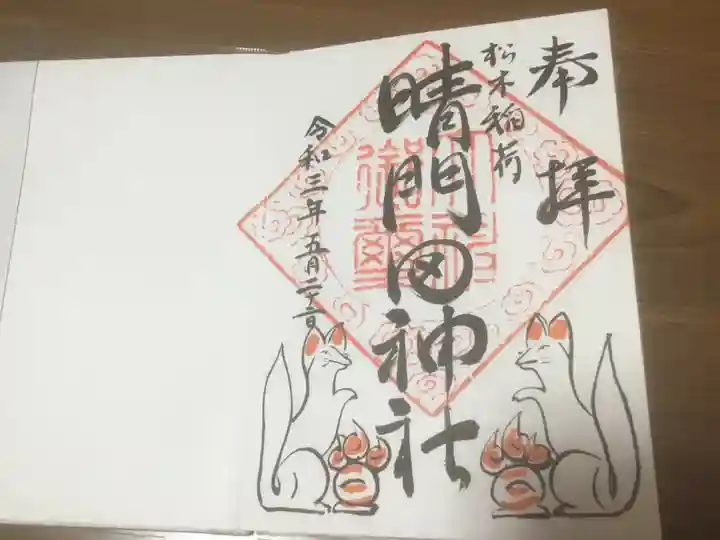 奉拝
松木稲荷
晴門田神社
令和三年五月二十二日